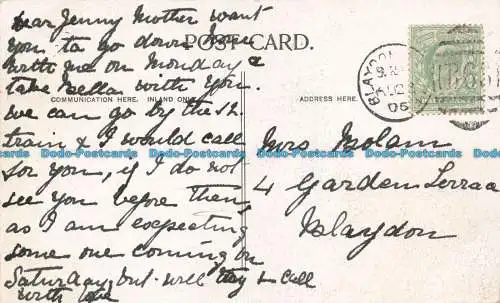 Dear Jenny Mother want
you to go down Home
with me on Monday &
take Bella with you.
we can go by the 12.
train & I would call
for you, if I do not
see you before then,
as I am expecting
some one coming on
Saturday, but will try & call
with love
POST CARD.
COMMUNICATION HERE. INLAND ONLY.
ADDRESS HERE.
BLAYDON
05
Mrs Molam
4 Garden Terrace
Blaydon
Dodo-Postcards Dodo-Postcards Dodo-Postcards